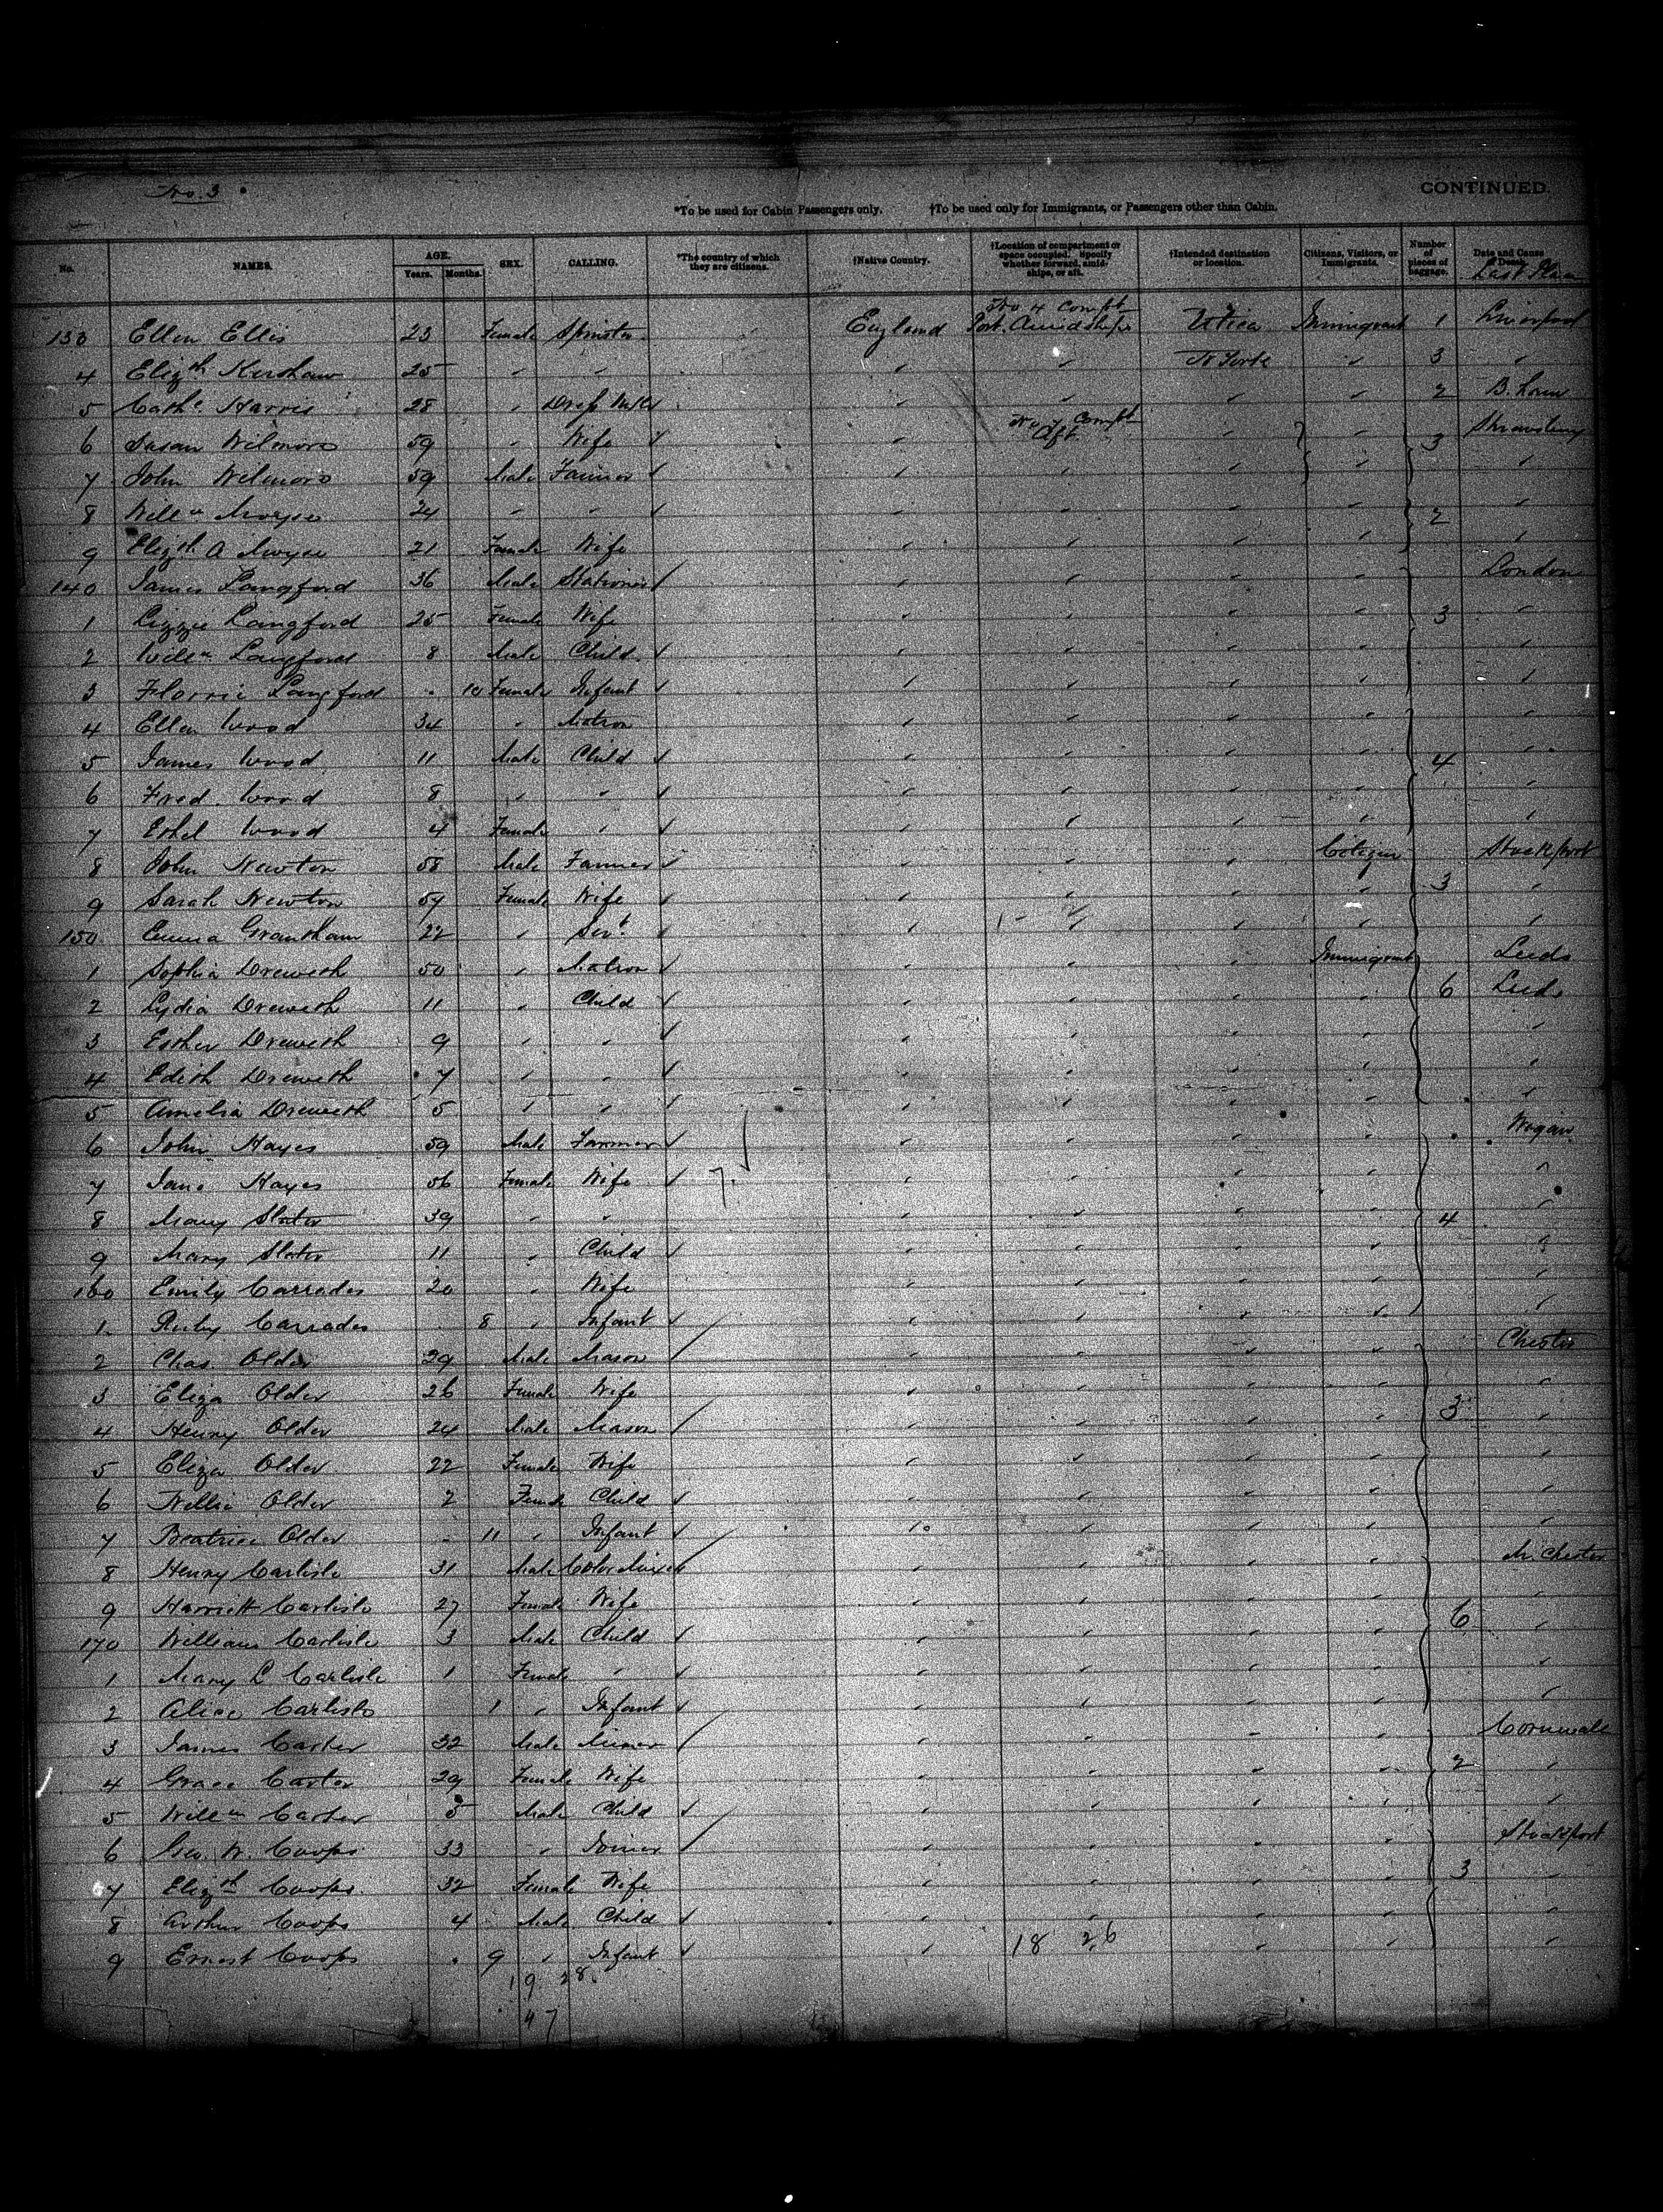 No. 3
CONTINUED.
*To be used for Cabin Passengers only. †To be used only for Immigrants, or Passengers other than Cabin.
No. NAMES. AGE. Years. Months. SEX. CALLING. *The country of which they are citizens. †Native Country. †Location of compartment or space occupied. Specify whether forward, amidships, or aft. †Intended destination or location. Citizens, Visitors, or Immigrants. Number of pieces of baggage. Date and Cause of Death.
Last Place
133 Ellen Ellis 23 Female Spinster England No 4 Compt Port. Amidships Utica Immigrant 1 Liverpool
4 Elizth Kershaw 25 " " " " N York " 3 "
5 Cathe Harris 28 " Dress Mkr " " " " 2
6 Susan Wilmore 59 " Wife " No 7 Compt Aft " " 3
7 John Wilmore 59 Male Farmer " " " " "
8 Willm 24 " " " " " " 2 "
9 Elizth A 21 Female Wife " " " " "
140 James Langford 36 Male Stationer " " " " London
1 Lizzie Langford 25 Female Wife " " " " 3 "
2 Willm Langford 8 Male Child " " " " "
3 Florrie Langford 10 Female Infant " " " " "
4 Ellen Wood 34 " Matron " " " " "
5 James Wood 11 Male Child " " " " 4 "
6 Fred. Wood 8 " " " " " " "
7 Ethel Wood 4 Female " " " " " "
8 John Newton 58 Male Farmer " " " Citizen Stockport
9 Sarah Newton 59 Female Wife " " " " 3 "
150 Emma Grantham 22 " Servt " " " " "
1 Sophia Dreweth 50 " Matron " " " Immigrant Leeds
2 Lydia Dreweth 11 " Child " " " " 6 Leeds
3 Esther Dreweth 9 " " " " " " "
4 Edith Dreweth 7 " " " " " " "
5 Amelia Dreweth 5 " " " " " " "
6 John Hayes 59 Male Farmer " " " " Wigan
7 Jane Hayes 56 Female Wife " " " " "
8 Mary Slater 39 " " " " " " 4 "
9 Mary Slater 11 " Child " " " " "
160 Emily Carrades 20 " Wife " " " " "
1 Ruby Carrades 8 " Infant " " " " "
2 Chas Older 29 Male Mason " " " " Chester
3 Eliza Older 26 Female Wife " " " " "
4 Henry Older 24 Male Mason " " " " 3 "
5 Eliza Older 22 Female Wife " " " " "
6 Nellie Older 2 Female Child " " " " "
7 Beatrice Older 11 " Infant " " " " "
8 Henry Carlisle 31 Male Color Mixer " " " " M. Chester
9 Harriett Carlisle 27 Female Wife " " " " "
170 William Carlisle 3 Male Child " " " " 6 "
1 Mary L Carlisle 1 Female " " " " " "
2 Alice Carlisle 1 " Infant " " " " "
3 James Carter 32 Male Miner " " " " Cornwall
4 Grace Carter 29 Female Wife " " " " 2 "
5 Willm Carter Male Child " " " " "
6 Geo. W. Coops 33 " Joiner " " " " Stockport
7 Elizth Coops 32 Female Wife " " " " 3 "
8 Arthur Coops 4 Male Child " " " " "
9 Ernest Coops 9 " Infant " 18 26 " " "
19 28
47